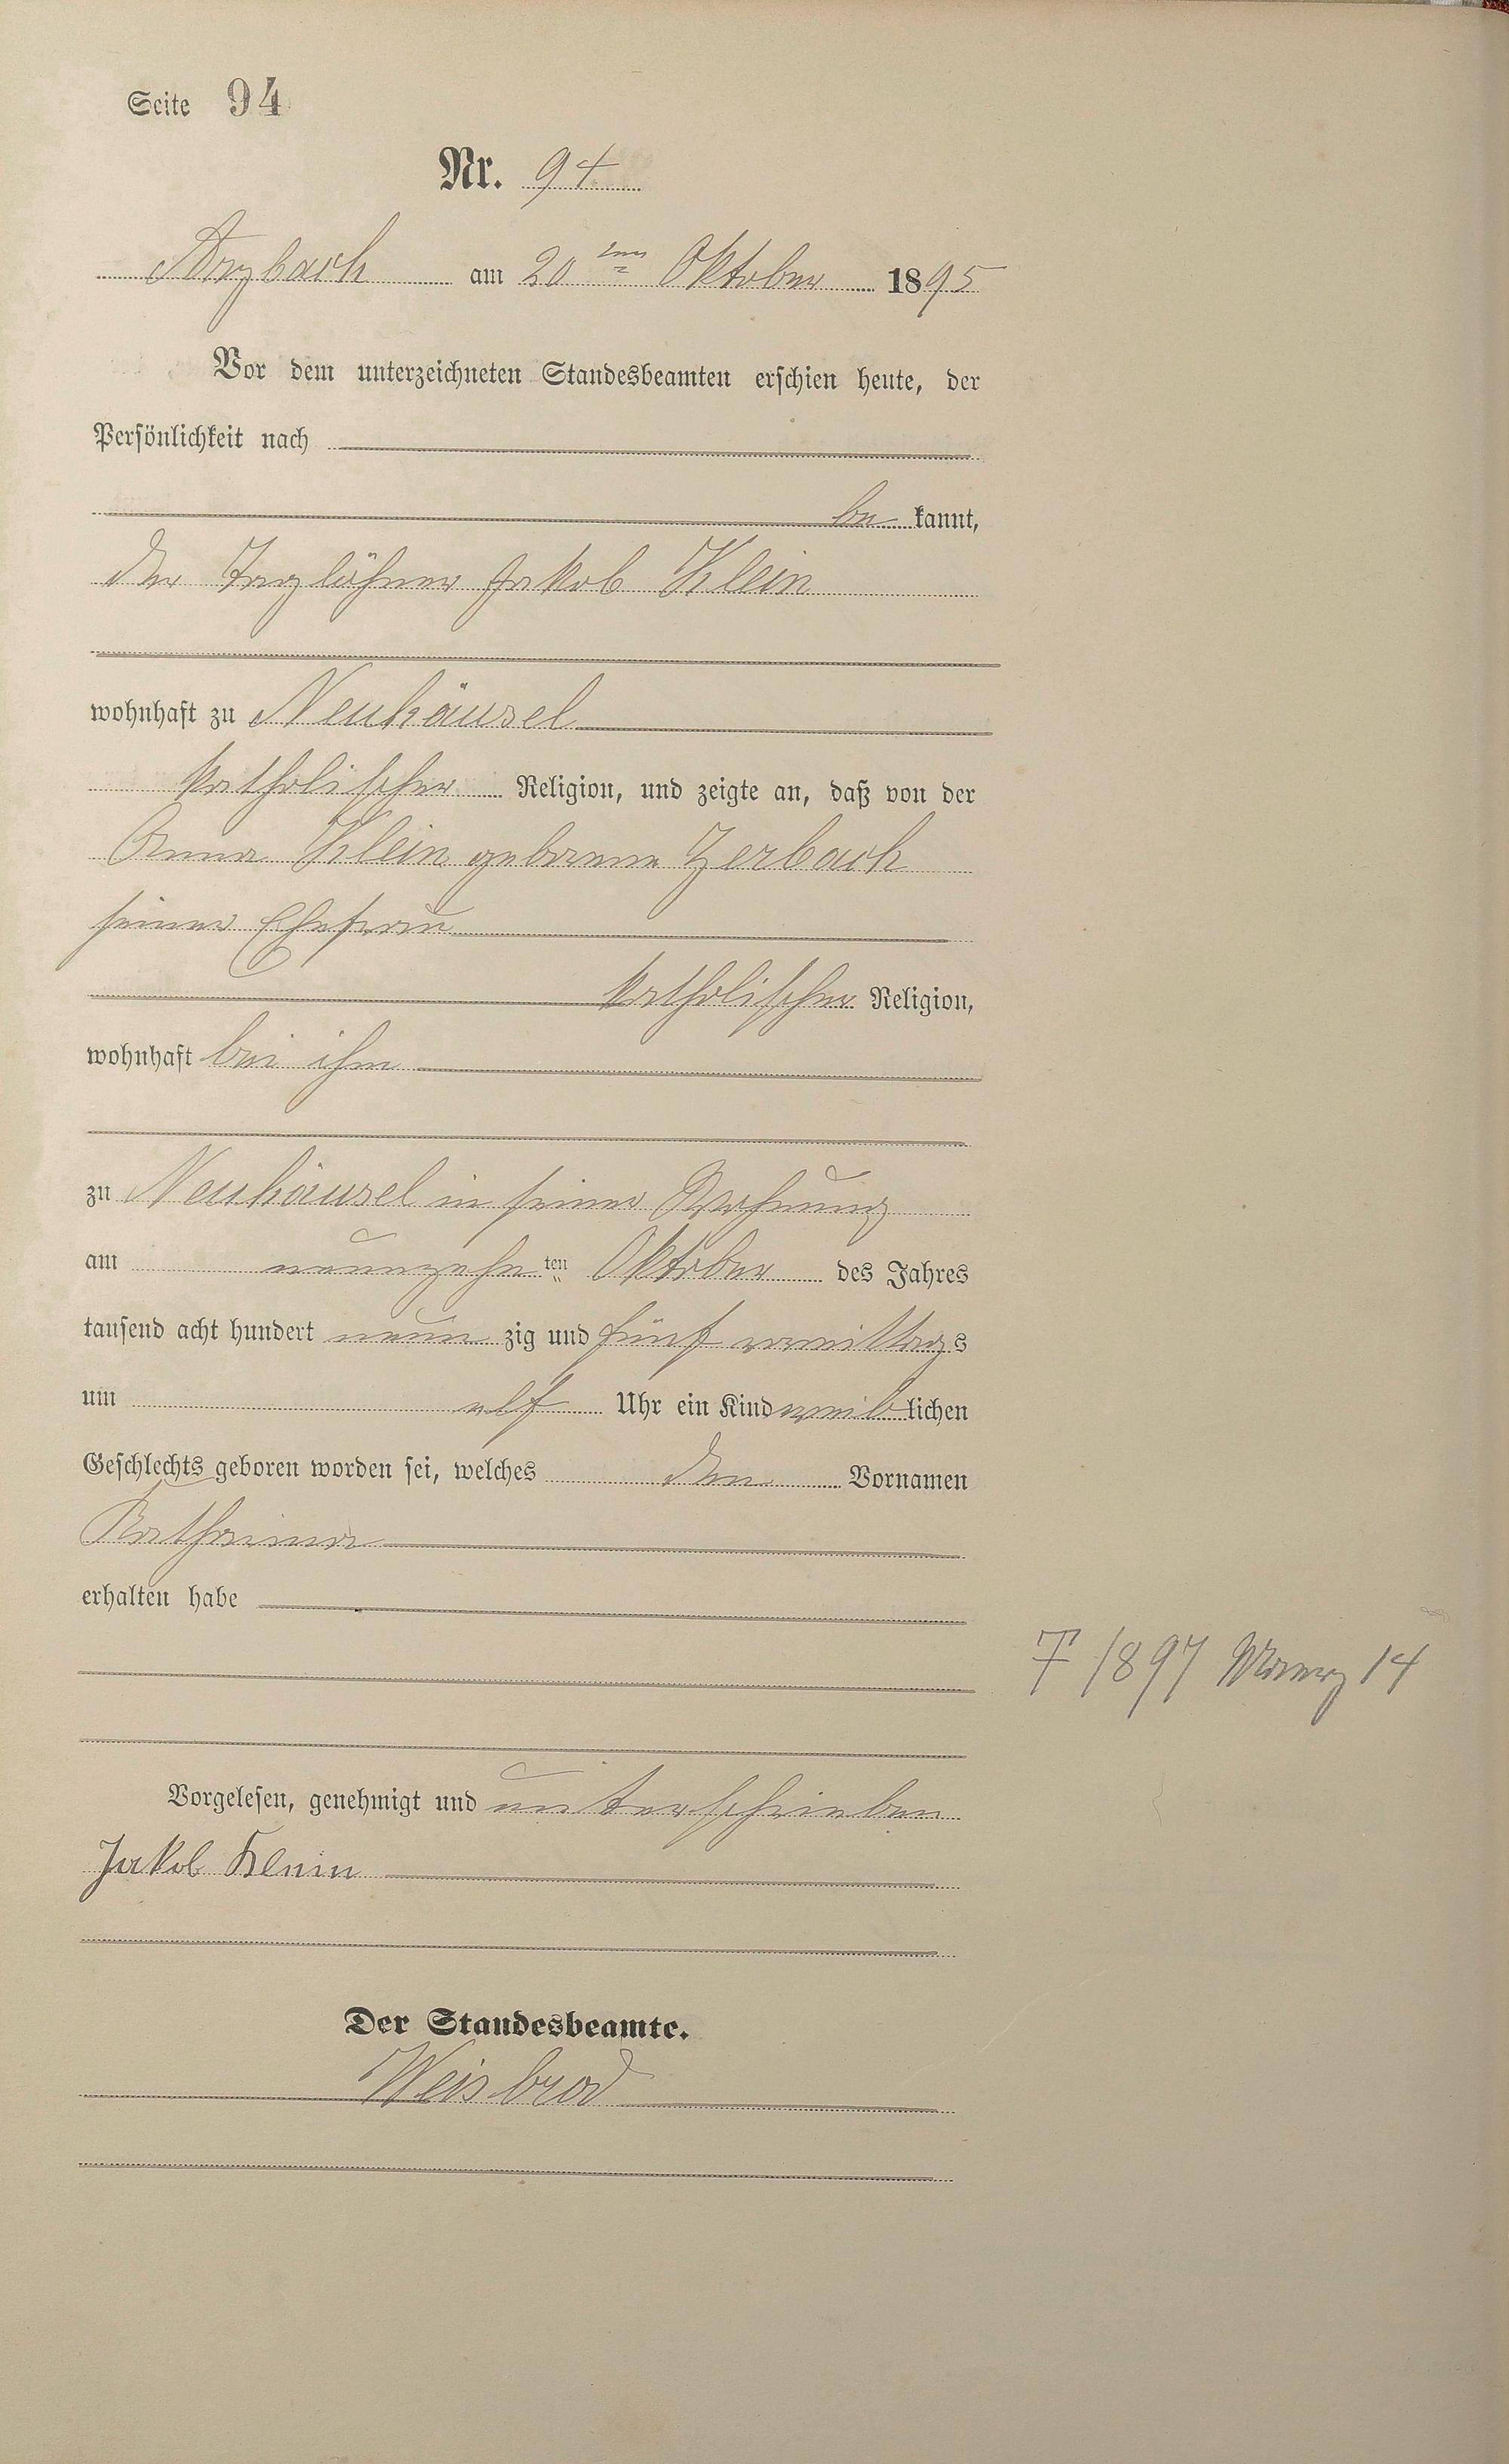 Seite 94
Nr. 94
Arzbach am 20ten Oktober 1895
Vor dem unterzeichneten Standesbeamten erschien heute, der
Persönlichkeit nach
be kannt,
der Taglöhner Jakob Klein
wohnhaft zu Neuhäusel
katholischer Religion, und zeigte an, daß von der
Anna Klein geborene Zerbach
seiner Ehefrau
katholischer Religion,
wohnhaft bei ihm
zu Neuhäusel in seiner Wohnung
am neunzehnten Oktober des Jahres
tausend acht hundert neun zig und fünf vormittags
um elf Uhr ein Kind weiblichen
Geschlechts geboren worden sei, welches den Vornamen
Katharina
erhalten habe
† 1897 14
Vorgelesen, genehmigt und unterschrieben
Jakob Klein
Der Standesbeamte.
Weisbrod